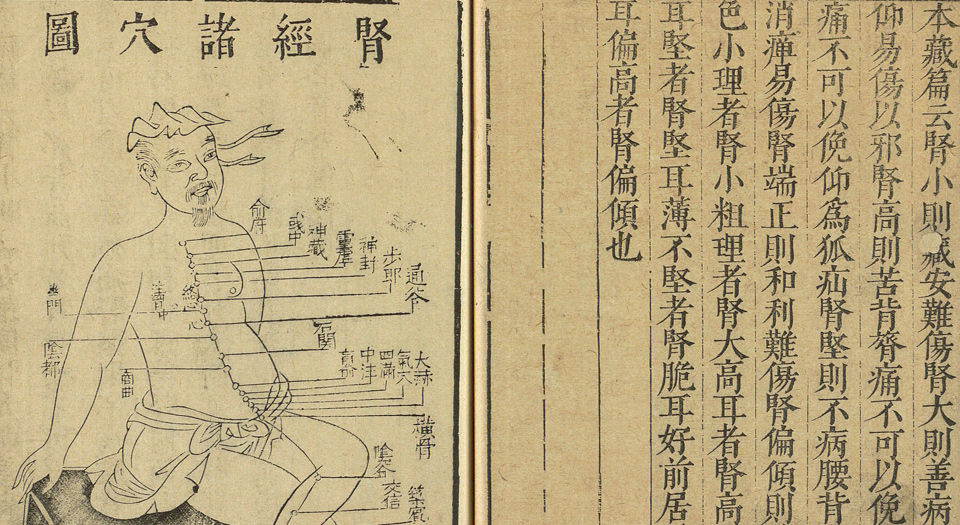 本藏篇云腎小則臟安難傷腎大則善病
仰易傷以邪腎高則苦背膂痛不可以俛
痛不可以俛仰爲狐疝腎堅則不病腰背
消癉易傷腎端正則和利難傷腎偏傾則
色小理者腎小粗理者腎大高耳者腎高
耳堅者腎堅耳薄不堅者腎脆耳好前居
耳偏高者腎偏傾也
腎經諸穴圖
俞府
彧中
神藏
靈墟
神封
步郎
通谷
幽門
絡心
石關
陰都
商曲
肓俞
中注
四滿
氣穴
大赫
橫骨
陰谷
交信
築賓